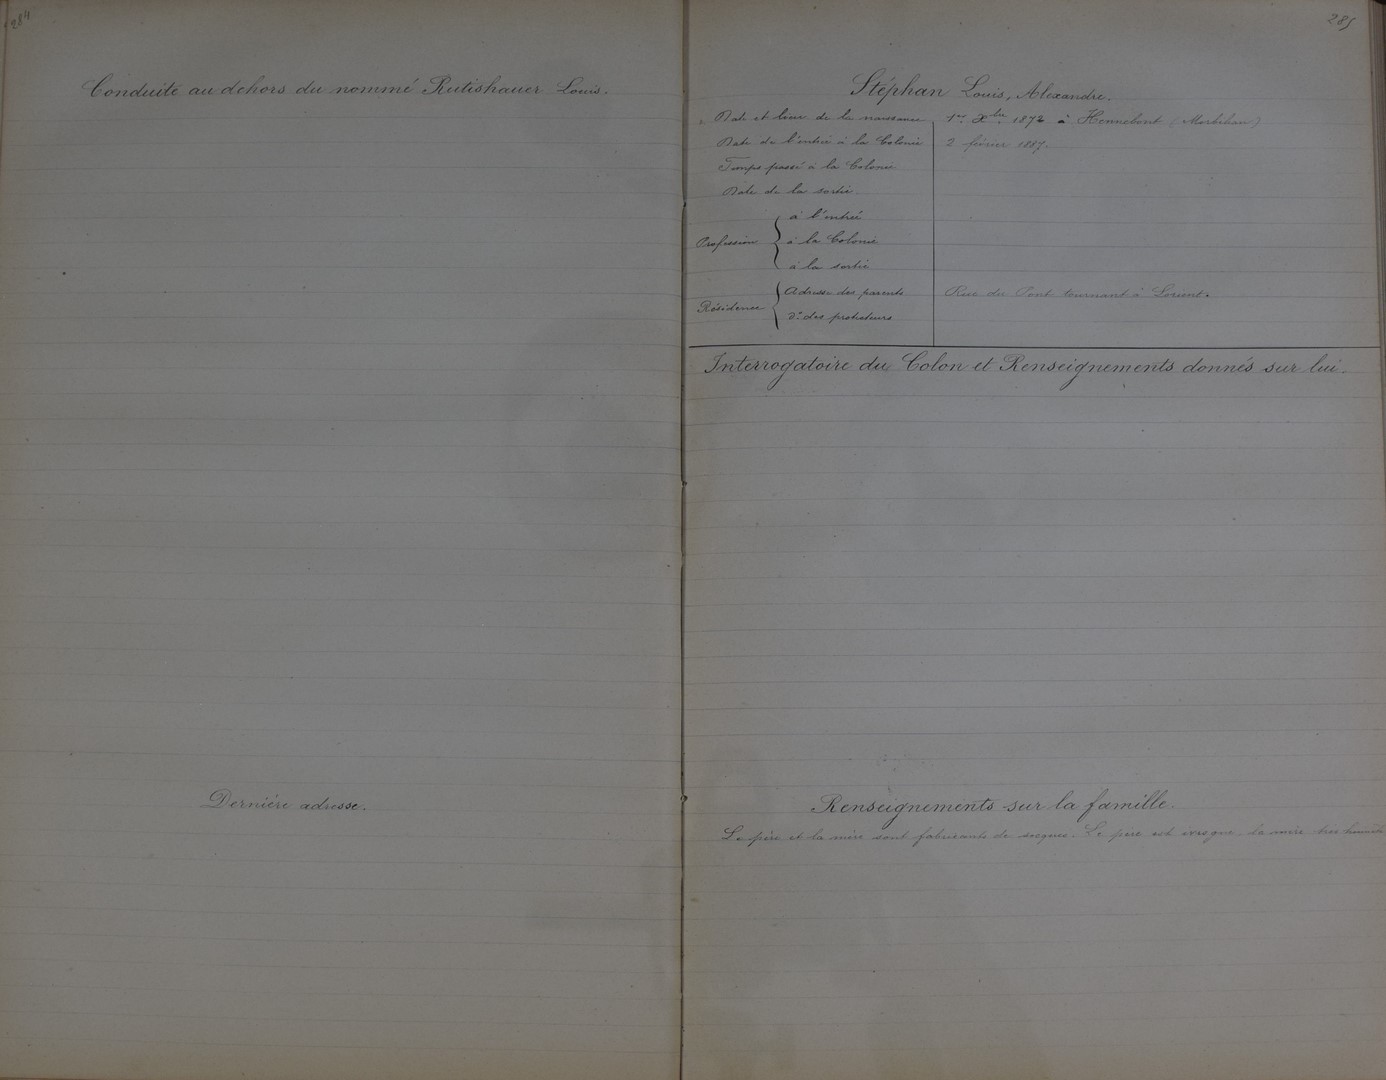 284
Conduite au dehors du nommé Rutishauer Louis.
Dernière adresse.
285
Stéphan Louis, Alexandre.
Date et lieu de la naissance 1er Xbre 1872 à Hennebont (Morbihan)
Date de l'entrée à la Colonie 2 février 1887.
Temps passé à la Colonie
Date de la sortie.
à l'entrée
Profession à la Colonie
à la sortie
Adresse des parents Rue du Pont tournant à Lorient.
Résidence
do des protecteurs
Interrogatoire du Colon et Renseignements donnés sur lui.
Renseignements sur la famille.
Le père et la mère sont fabricants de Le père est ivrogne la mère très honnête